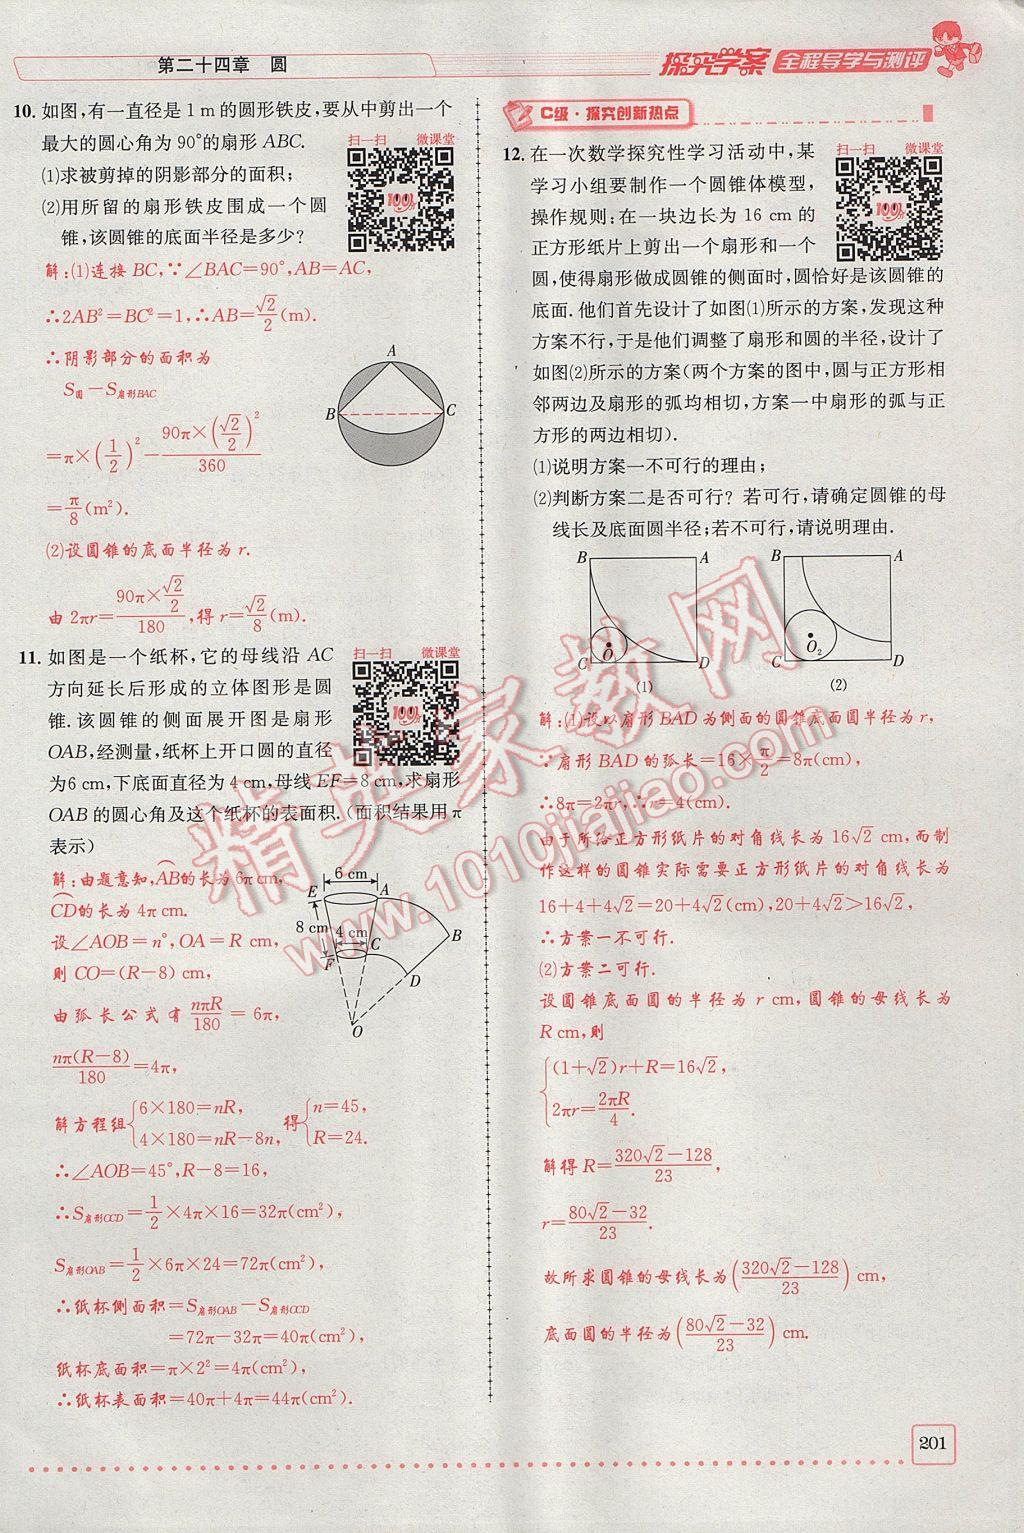 第二十四章 圆
探究学案 全程导学与测评
10. 如图,有一直径是 1 m 的圆形铁皮,要从中剪出一个
最大的圆心角为 90°的扇形 ABC.
扫一扫 微课堂
(1)求被剪掉的阴影部分的面积;
(2)用所留的扇形铁皮围成一个圆
锥,该圆锥的底面半径是多少?
解:(1)连接 BC,∵∠BAC=90°,AB=AC,
∴2AB²=BC²=1,∴AB=√2/2(m).
∴阴影部分的面积为
S圆-S扇形BAC
=π×(1/2)²-90π×(√2/2)²/360
=π/8(m²).
A
B
C
(2)设圆锥的底面半径为 r.
由 2πr=90π×√2/2/180,得 r=√2/8(m).
11. 如图是一个纸杯,它的母线沿 AC
扫一扫 微课堂
方向延长后形成的立体图形是圆
锥.该圆锥的侧面展开图是扇形
OAB,经测量,纸杯上开口圆的直径
为6 cm,下底面直径为 4 cm,母线 EF=8 cm,求扇形
OAB 的圆心角及这个纸杯的表面积.(面积结果用 π
表示)
解:由题意知,AB的长为 6π cm,
CD的长为 4π cm.
设∠AOB=n°,OA=R cm,
则 CO=(R-8)cm,
由弧长公式有 nπR/180=6π,
nπ(R-8)/180=4π,
6 cm
E
A
8 cm
4 cm
C
B
F
D
O
解方程组{6×180=nR, 4×180=nR-8n, 得{n=45, R=24.
∴∠AOB=45°,R-8=16,
∴S扇形OCD=1/2×4π×16=32π(cm²),
S扇形OAB=1/2×6π×24=72π(cm²),
∴纸杯侧面积=S扇形OAB-S扇形OCD
=72π-32π=40π(cm²),
纸杯底面积=π×2²=4π(cm²),
∴纸杯表面积=40π+4π=44π(cm²)
C级·探究创新热点
12. 在一次数学探究性学习活动中,某
扫一扫 微课堂
学习小组要制作一个圆锥体模型,
操作规则:在一块边长为 16 cm 的
正方形纸片上剪出一个扇形和一个
圆,使得扇形做成圆锥的侧面时,圆恰好是该圆锥的
底面.他们首先设计了如图(1)所示的方案,发现这种
方案不行,于是他们调整了扇形和圆的半径,设计了
如图(2)所示的方案(两个方案的图中,圆与正方形相
邻两边及扇形的弧均相切,方案一中扇形的弧与正
方形的两边相切).
(1)说明方案一不可行的理由;
(2)判断方案二是否可行? 若可行,请确定圆锥的母
线长及底面圆半径;若不可行,请说明理由.
B A B A
C D C O₂ D
(1) (2)
解:(1)设以扇形 BAD 为侧面的圆锥底面圆半径为 r,
∵扇形 BAD 的弧长=16×π/2=8π(cm),
∴8π=2πr,∴r=4(cm).
由于所给正方形纸片的对角线长为 16√2 cm,而制
作这样的圆锥实际需要正方形纸片的对角线长为
16+4+4√2=20+4√2(cm),20+4√2>16√2,
∴方案一不可行.
(2)方案二可行.
设圆锥底面圆的半径为 r cm,圆锥的母线长为
R cm,则
{(1+√2)r+R=16√2,
2πr=2πR/4.
解得 R=320√2-128/23,
r=80√2-32/23.
故所求圆锥的母线长为(320√2-128/23) cm,
底面圆的半径为(80√2-32/23) cm.
精英家教网
www.1010jiajiao.com
201